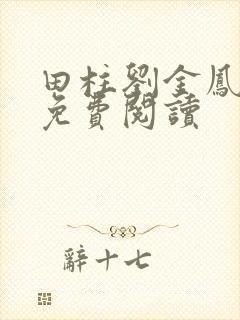 田柱劉金鳳
免費閱讀
辭十七